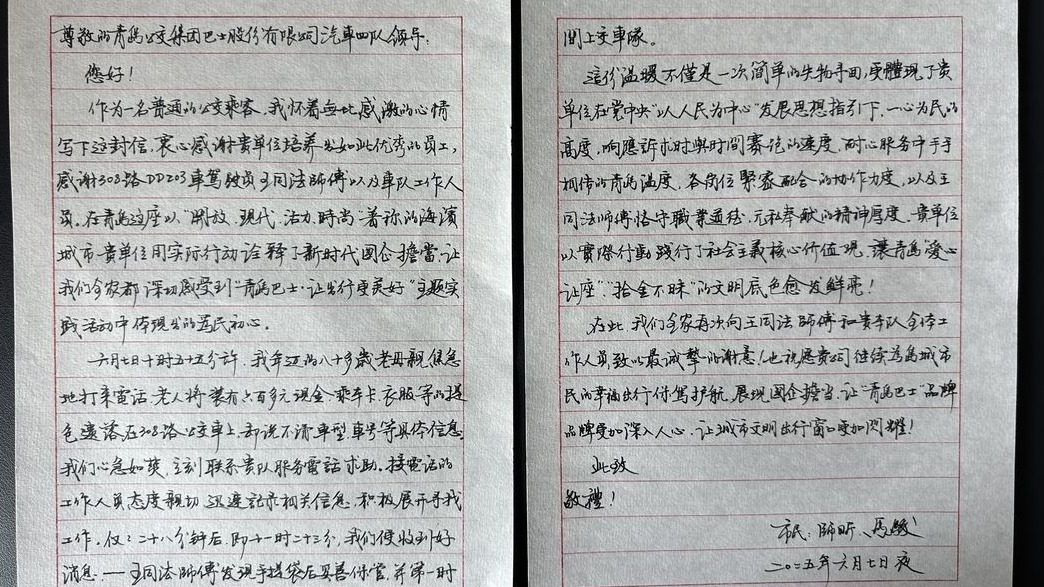 尊敬的青岛公交集团巴士股份有限公司汽車四队领导：
您好！
作为一名普通的公交乘客，我怀着无比感激的心情
写下这封信，衷心感谢贵单位培养出如此优秀的员工，
感谢308路DD203車驾驶员王同法師傅以及車队工作人
员。在青岛这座以“開放、现代、活力、時尚”著称的海濱
城市，贵单位用实际行动诠释了新时代國企擔當，让
我们全家都深切感受到“青岛巴士·让出行更美好”主题实
践活动中体现出的為民初心。
六月七日十时五十五分许，我年迈的八十多歲老母親焦急
地打来電话，老人将装有上百多元现金、乘车卡、衣服等的提
包遗落在308路公交車上，却说不清車型、車号等具体信息。
我们心急如焚，立刻联系贵队服务電話求助。接電话的
工作人員态度親切，迅速記录相关信息，积极展开寻找
工作。仅仅二十八分钟后，即十一时二十三分，我们便收到好
消息——王同法師傅发现手提袋后妥善保管，并第一时
間上交車隊。
這份温暖不僅是一次简单的失物寻回，更體現了贵
单位在党中央“以人民为中心”发展思想指引下，一心为民的
高度，响應訴求时與时間赛跑的速度，耐心服务中手手
相傳的青岛温度，各岗位緊密配合的协作力度，以及王
同法師傅恪守職業道德、无私奉献的精神厚度。貴单位
以實際行動践行了社会主義核心价值观，讓青岛“愛心
让座”“拾金不昧”的文明底色愈发鲜亮！
在此，我们全家再次向王同法師傅和贵车队全体工
作人員致以最诚摯的谢意！也祝愿贵公司继续為岛城市
民的幸福出行保驾护航，展现國企擔當，让“青岛巴士”品牌
品牌更加深入人心，让城市文明出行窗口更加閃耀！
此致
敬禮！
市民：師昕、馬駿
二〇二五年六月七日夜